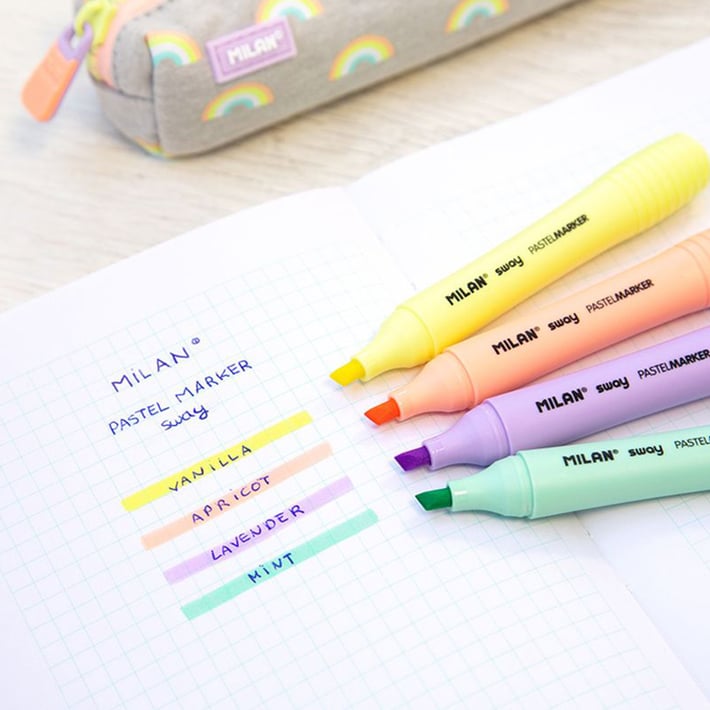 MILAN®
MILAN® sway PASTELMARKER
MILAN® sway PASTELMARKER
MILAN® sway PASTELMARKER
MILAN® sway PASTEL
MILAN®
PASTEL MARKER
sway
VANILLA
APRICOT
LAVENDER
MINT